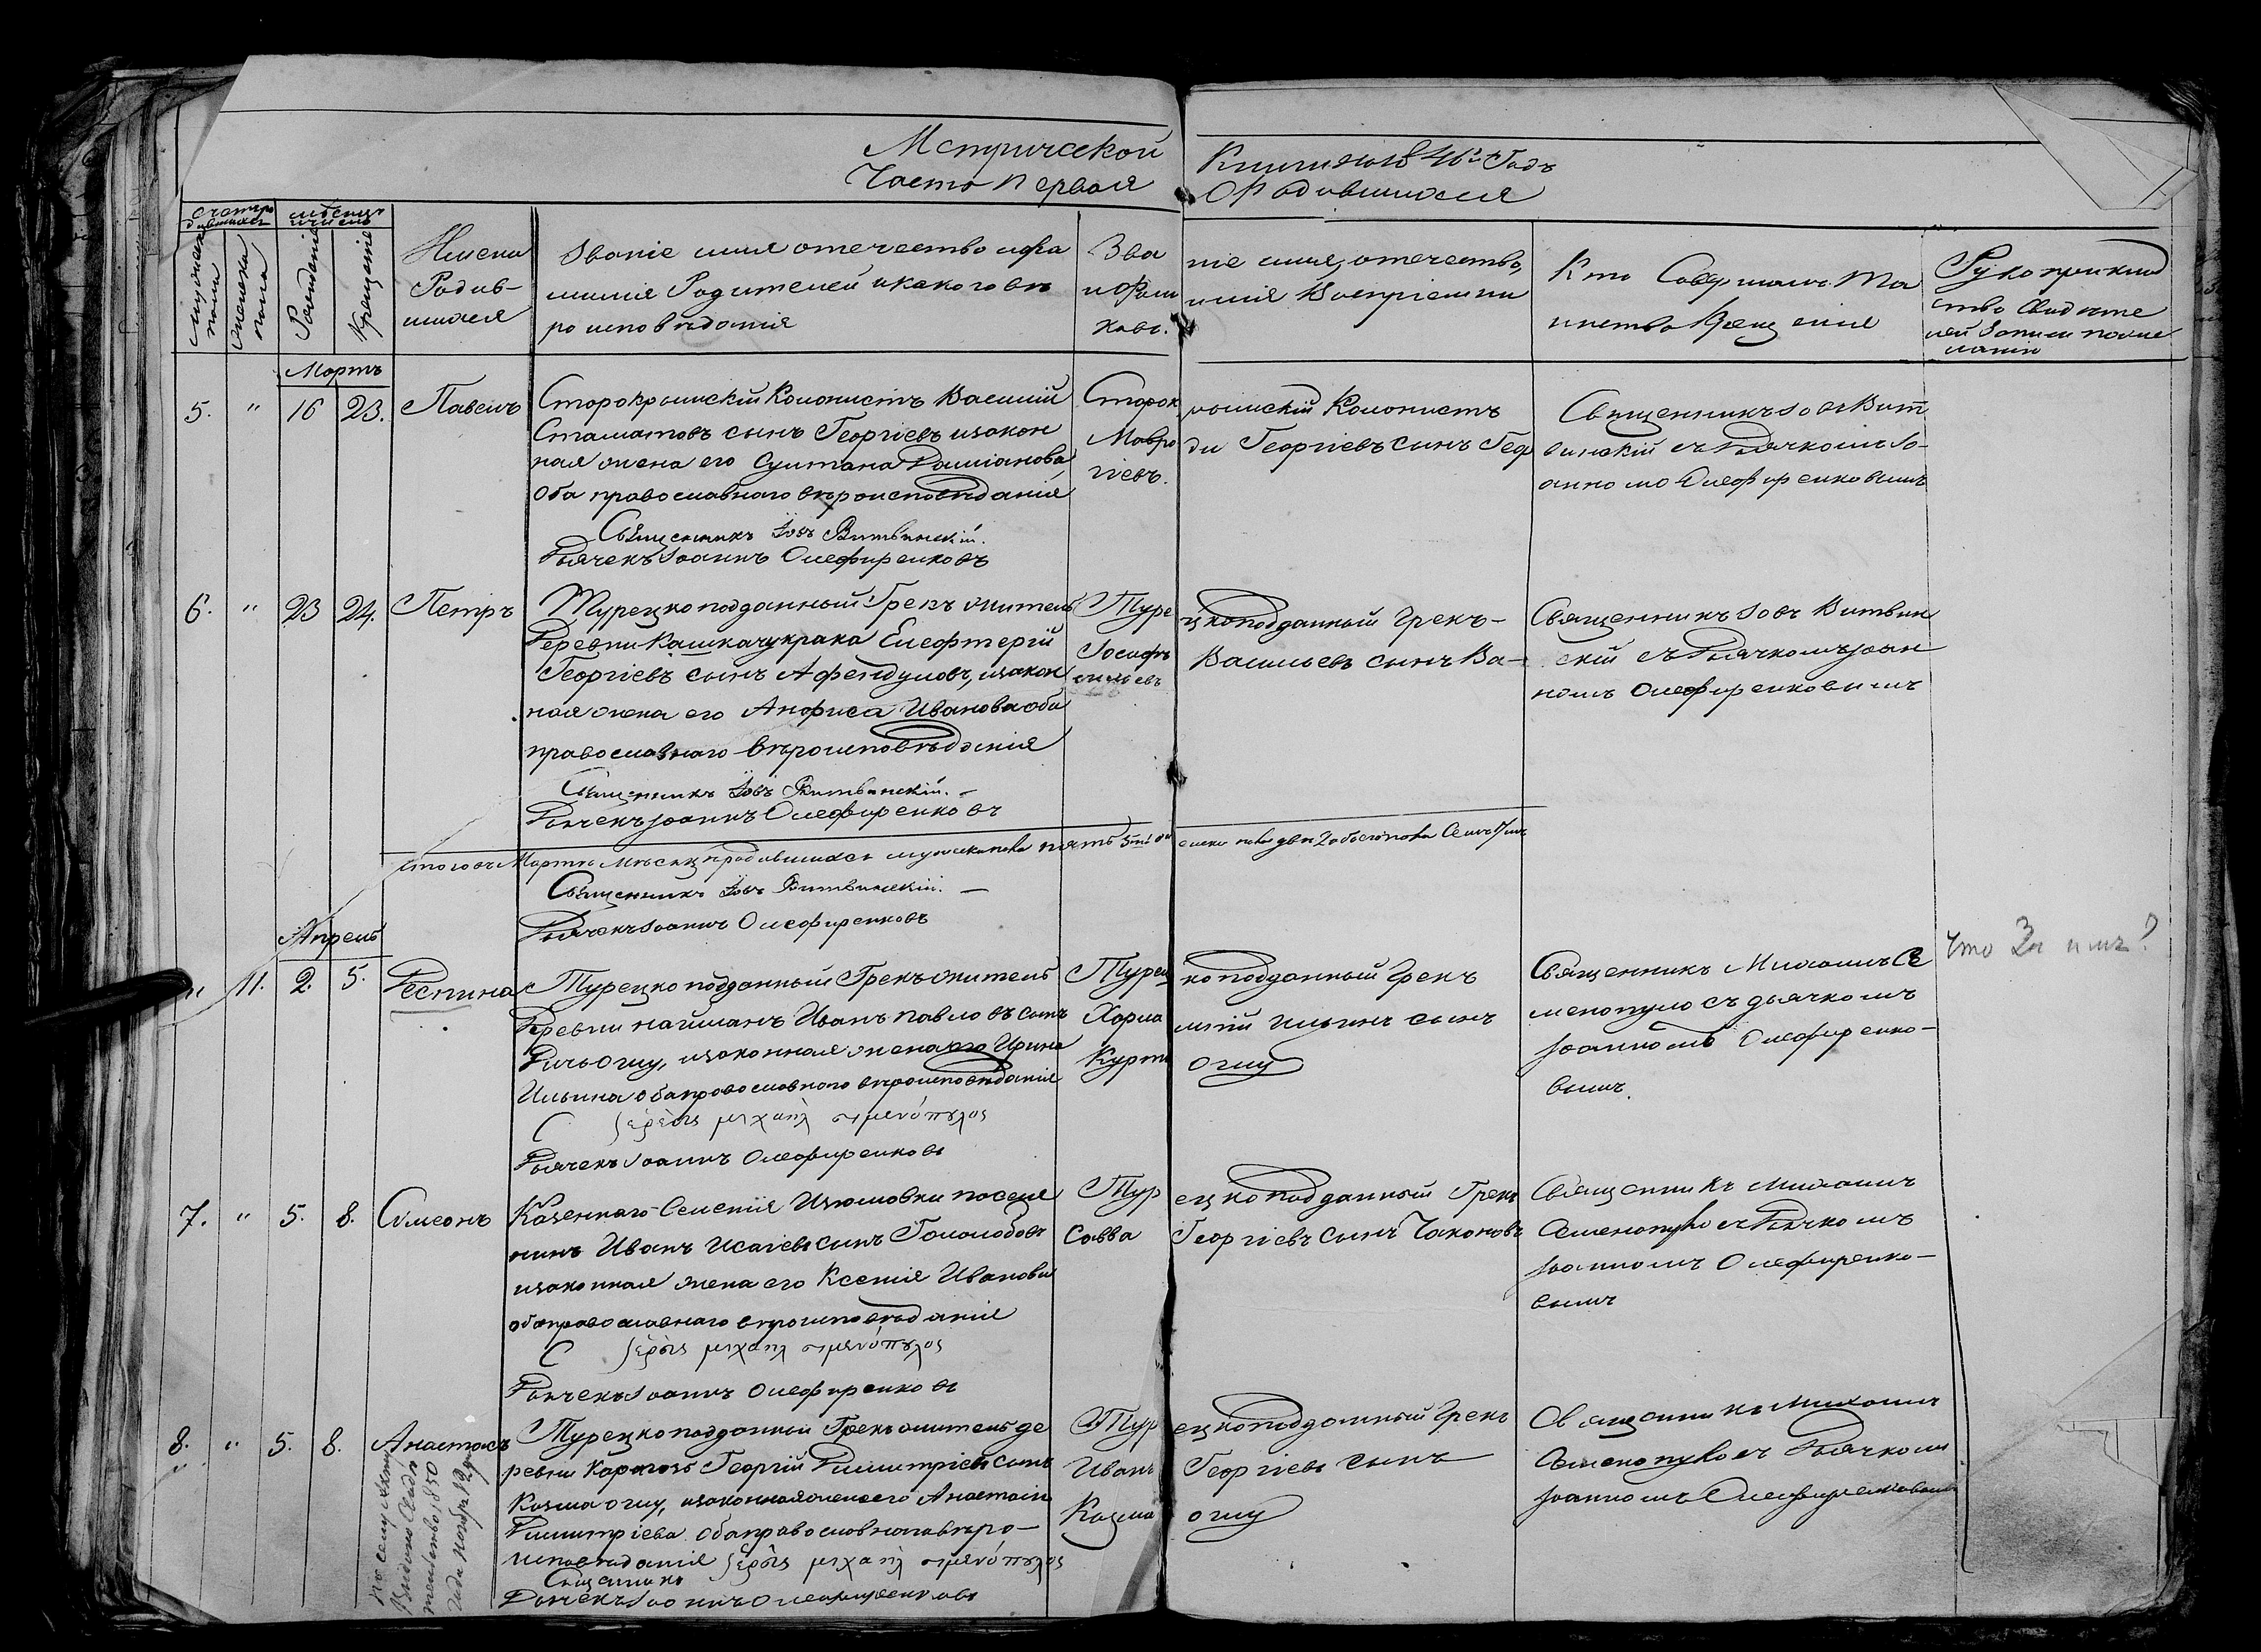 Метрической Книги на 1846й Годъ
Часть Первая О Родившихся
счетъ родившихся
мѣсяцъ и число
мужеска пола
женска пола
Рожденіе
Крещеніе
Имена
Родив-
шихся
Званіе имя отечество и фа
милія Родителей и какого вѣ
роисповѣданія
Зва ніе имя, отечество,
и Фам илія Воспріемни
ковъ.
Кто Совершалъ Та
инство Крещенія
Рукоприклад
ство Свидѣте
лей записи по же
ланію
Мартъ
5. " 16 23. Павелъ
Старокрымскій Колонистъ Василій
Стаматовъ сынъ Георгіевъ изакон
ная жена его Султана Даміанова
Оба православнаго вѣроисповѣданія
Священникъ Іовъ Витвинскій.
Дьячекъ Іоаннъ Олефиренковъ
Старок рымскій Колонистъ
Мавро ди Георгіевъ сынъ Геор
гіевъ.
Священникъ Іовъ Вит
винскій съ Дьячкомъ Іо-
анномъ Олефиренковымъ
6. " 23 24. Петръ
Турецкоподданный Грекъ житель
Деревни Кашкачукрака Елефтерій
Георгіевъ сынъ Афендуловъ, изакон
ная жена его Анфиса Иванова оба
православнаго вѣроисповѣданія
Священникъ Іовъ Витвинскій. -
Дьячекъ Іоаннъ Олефиренковъ
Туре цкоподданный Грекъ-
Іосифъ Васильевъ сынъ Ва-
сильевъ
Священникъ Іовъ Витвин
скій съ Дьячкомъ Іоан
номъ Олефиренковымъ
Итого въ Мартѣ Мѣсяцѣ родившихся мужеска пола пять 5ть женска пола двѣ 2 обоего пола Семь 7мь
Священникъ Іовъ Витвинскій. -
Дьячекъ Іоаннъ Олефиренковъ
Апрель
" 11. 2. 5. Деспина
Турецкоподданный Грекъ житель
Деревни найманъ Иванъ Павловъ сынъ
изаконная жена его Ирина
Ильина оба православнаго вѣроисповѣданія
ἱερεὺς μιχαὴλ σιμενόπυλος
Дьячекъ Іоаннъ Олефиренковъ
Турец коподданный Грекъ
Харла мпій Ильинъ сынъ
Курти оглу
Священникъ Михаилъ Се
менопуло съ дьячкомъ
Іоанномъ Олефиренко-
вымъ.
Что За имя?
7. " 5. 8. Симеонъ
Казеннаго Селенія Изюмовки поселя
нинъ Иванъ Исаіевъ сынъ Гололобовъ
изаконная жена его Ксенія Иванова
оба православнаго вѣроисповѣданія
ἱερεὺς μιχαὴλ σιμενόπυλος
Дьячекъ Іоаннъ Олефиренковъ
Тур ецкоподданный Грекъ
Савва Георгіевъ сынъ Чаконовъ
Священникъ Михаилъ
Семенопуло съ Дьячкомъ
Іоанномъ Олефиренко-
вымъ
8. " 5. 8. Анастасъ
Турецкоподданный Грекъ житель де
ревни Карагозъ Георгій Димитріевъ сынъ
Козма оглу, изаконная жена его Анастасія
Димитріева оба православнаго вѣро-
исповѣданія ἱερεὺς μιχαὴλ σιμενόπυλος
Священникъ
Дьячекъ Іоаннъ Олефиренковъ
Тур ецкоподданный Грекъ
Иванъ Георгіевъ сынъ
Козма оглу
Священникъ Михаилъ
Семенопуло съ Дьячкомъ
Іоанномъ Олефиренковымъ
По сему Акту
Выдано Свидѣ
тельство 1850
Года ноября 12 дня